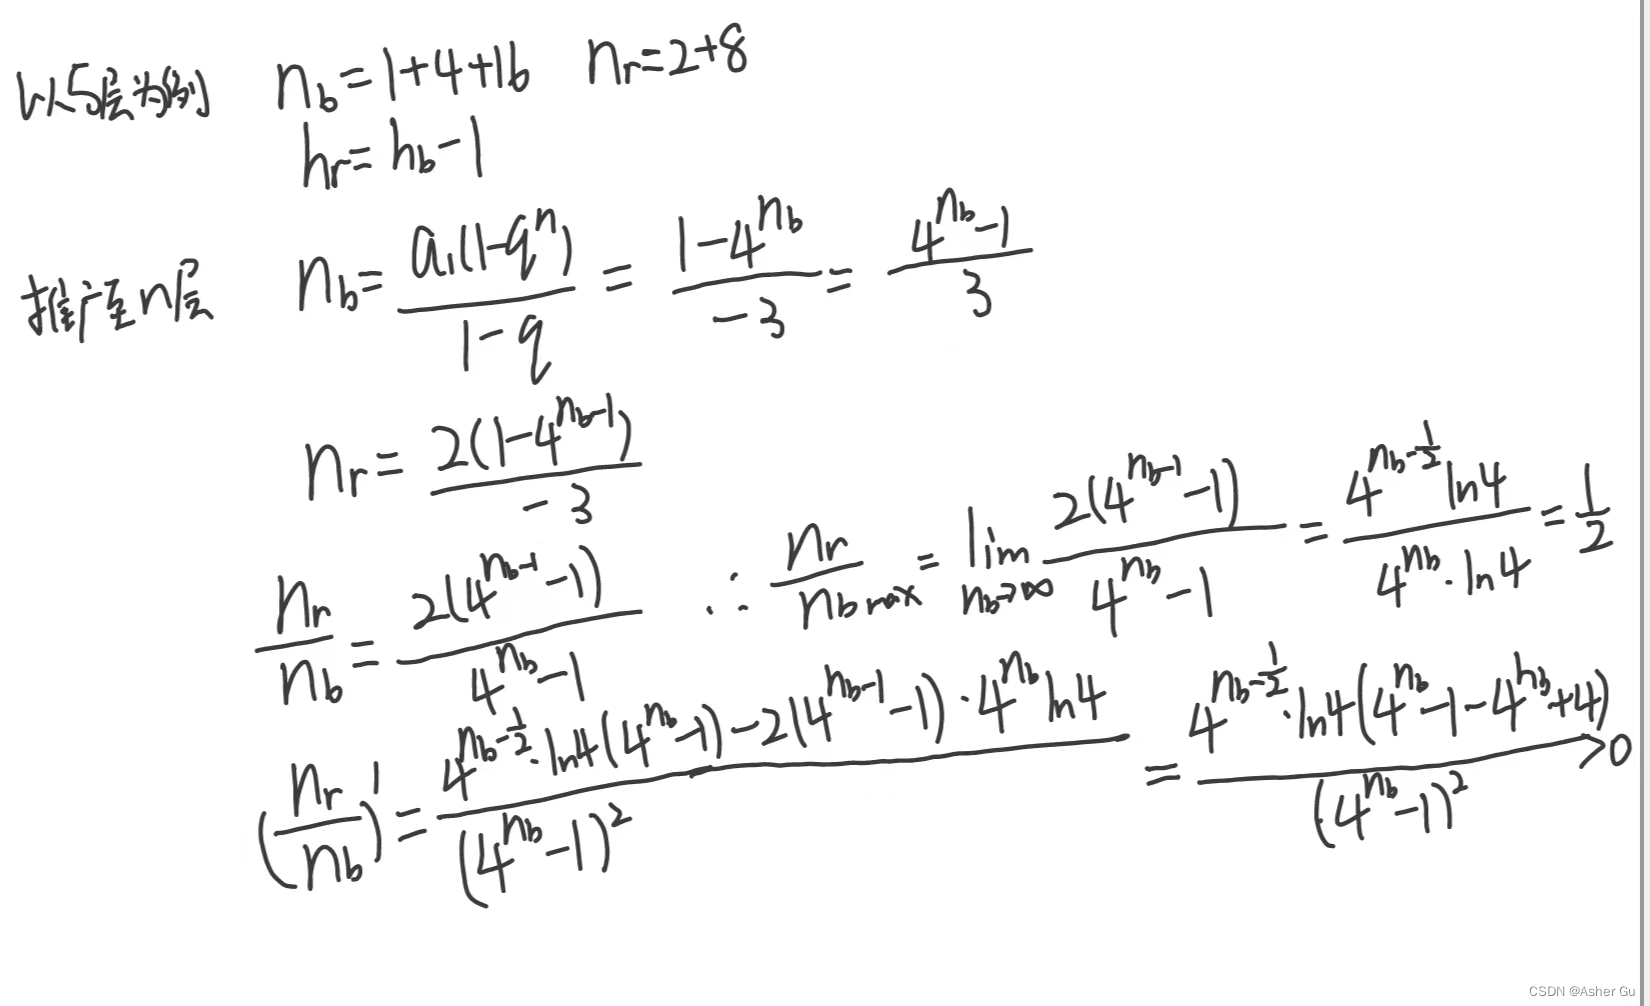 以5层为例 n_b=1+4+16 n_r=2+8
h_r=h_b-1
推广至n层 n_b=\frac{a_1(1-q^n)}{1-q}=\frac{1-4^{n_b}}{-3}=\frac{4^{n_b}-1}{3}
n_r=\frac{2(1-4^{n_b-1})}{-3}
\frac{n_r}{n_b}=\frac{2(4^{n_b-1}-1)}{4^{n_b}-1} ∴\frac{n_r}{n_b max}=\lim_{n_b→∞}\frac{2(4^{n_b-1}-1)}{4^{n_b}-1}=\frac{4^{n_b-\frac{1}{2}}ln4}{4^{n_b}·ln4}=\frac{1}{2}
(\frac{n_r}{n_b})'=\frac{4^{n_b-\frac{1}{2}}·ln4(4^{n_b}-1)-2(4^{n_b-1}-1)·4^{n_b}ln4}{(4^{n_b}-1)^2}=\frac{4^{n_b-\frac{1}{2}}·ln4(4^{n_b}-1-4^{n_b}+4)}{(4^{n_b}-1)^2}>0
CSDN @Asher Gu